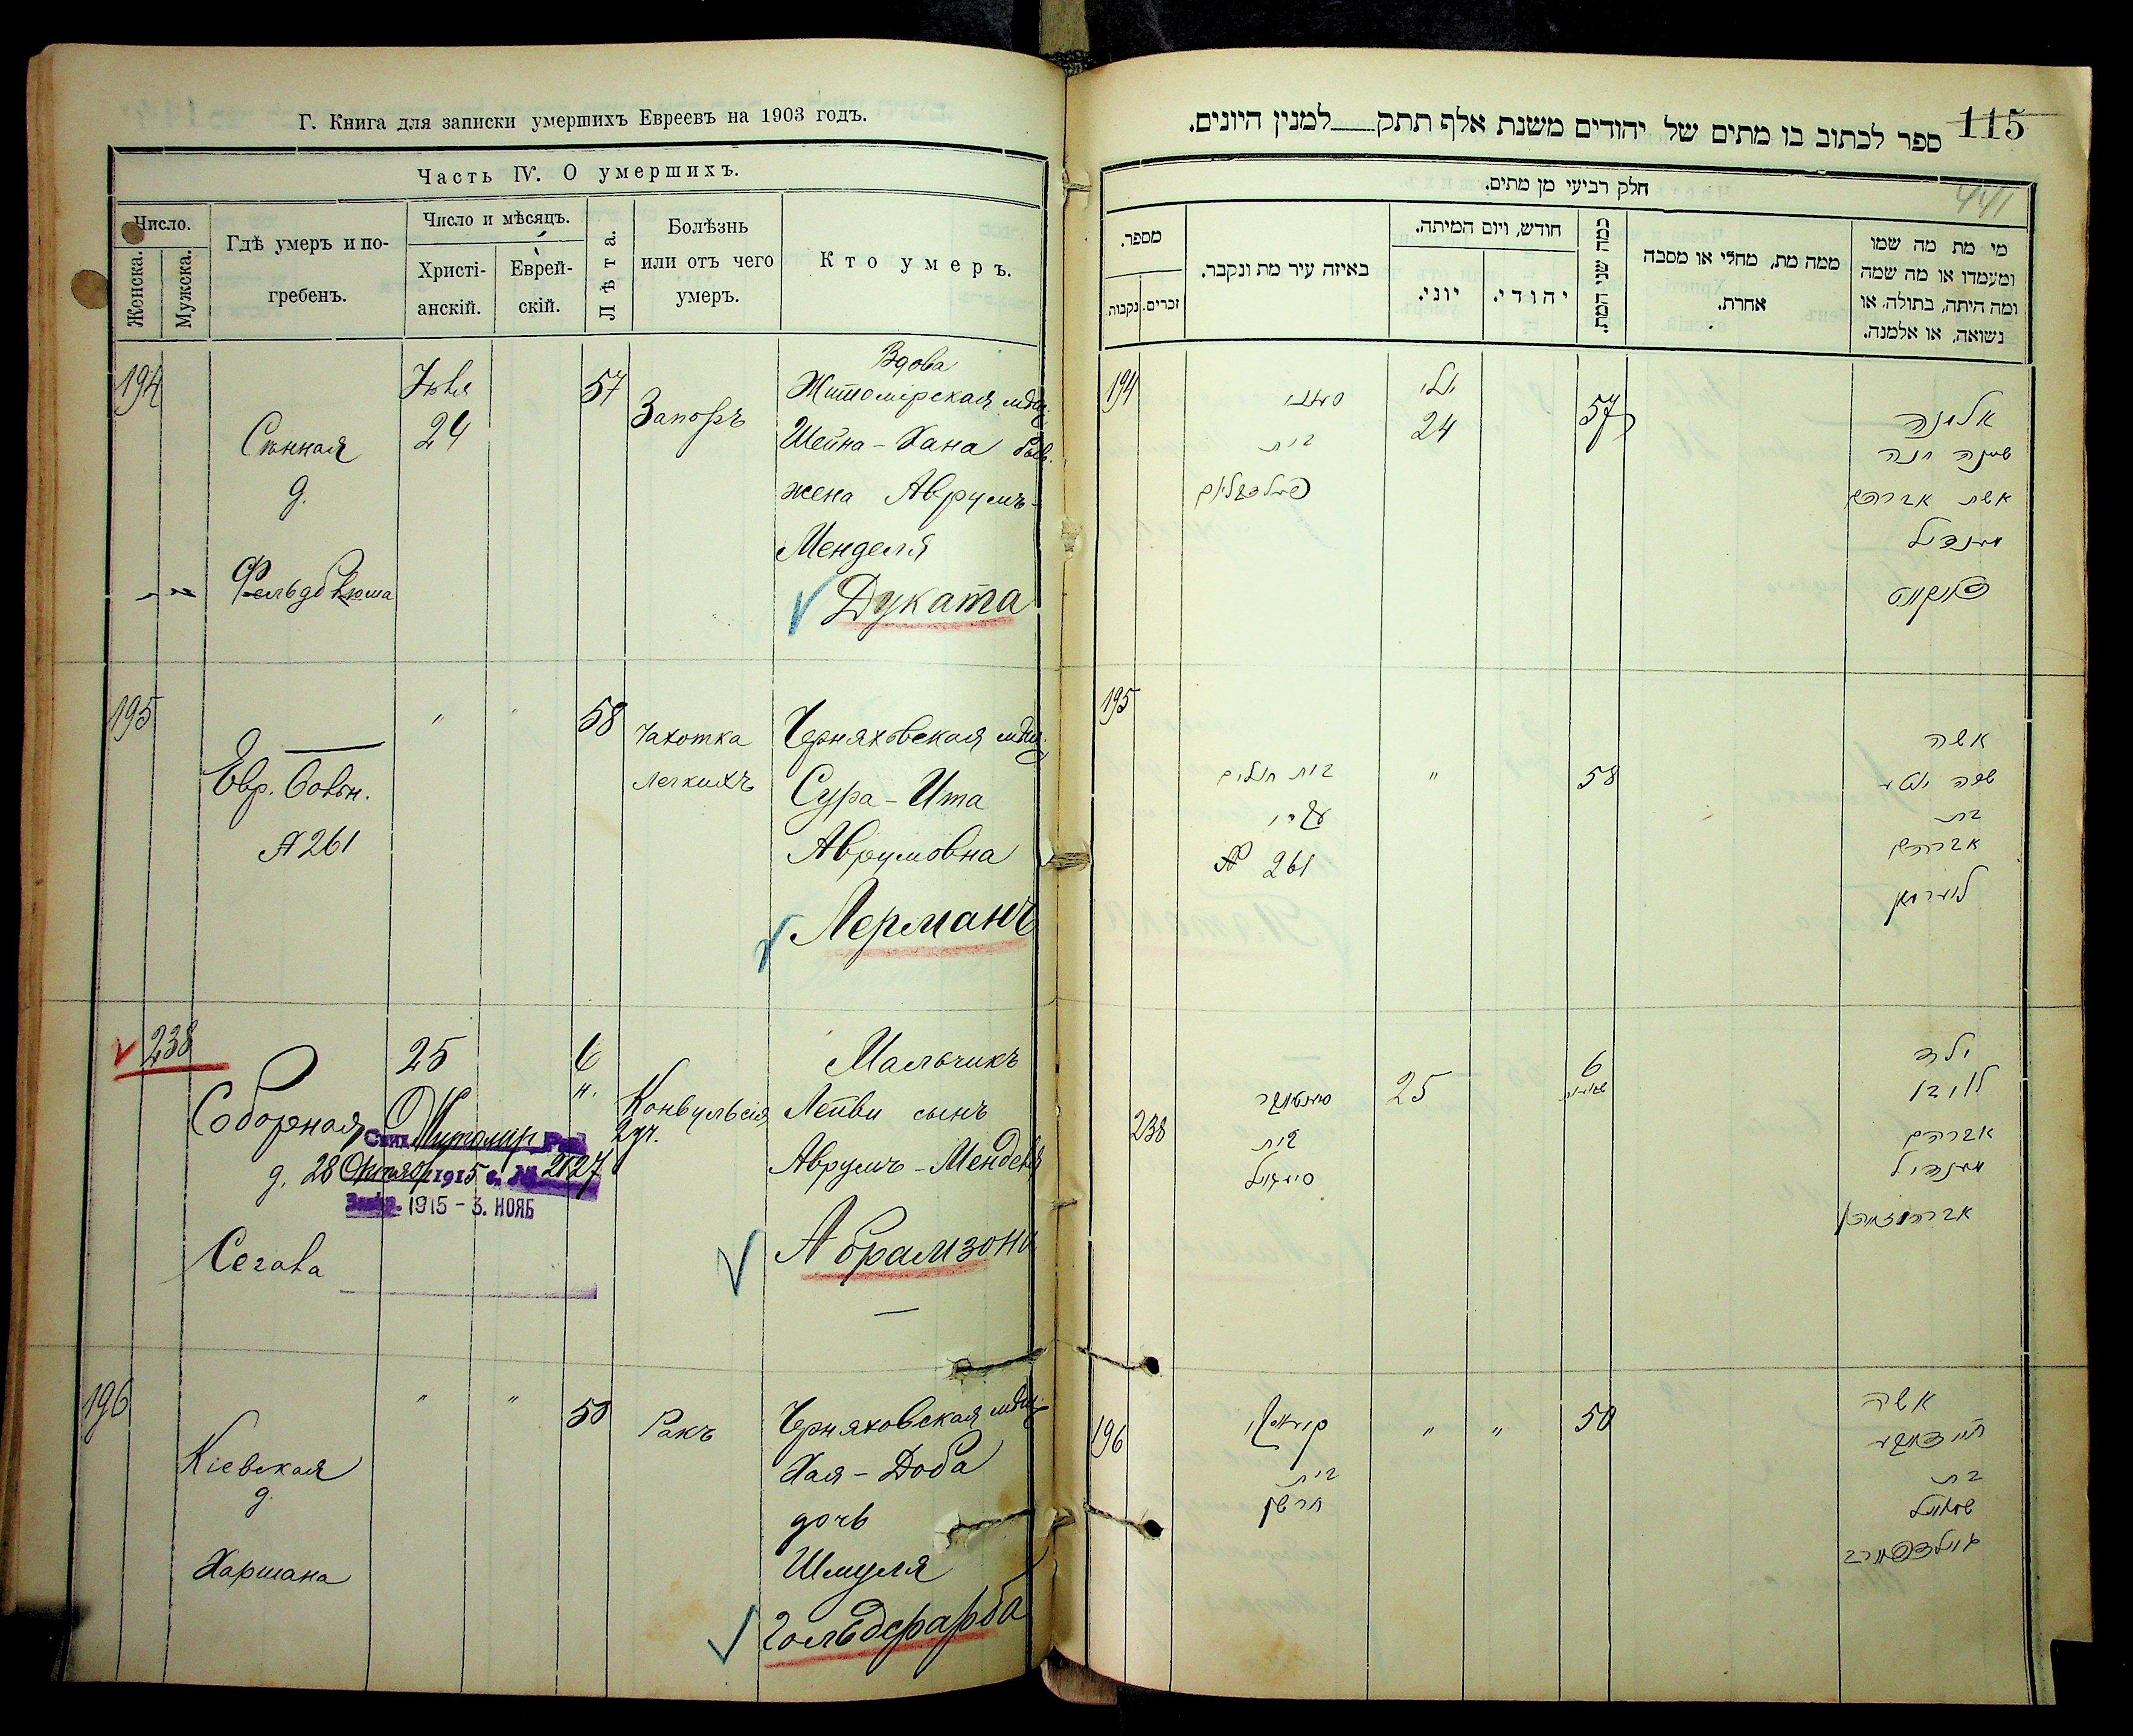 Г. Книга для записки умершихъ Евреевъ на 1903 годъ.
Часть IV. О умершихъ.
Число.
Женска.
Мужска.
Гдѣ умеръ и по-
гребенъ.
Число и мѣсяцъ.
Христі-
анскій.
Еврей-
скій.
Лѣта.
Болѣзнь
или отъ чего
умеръ.
Кто умеръ.
194
Сѣнная
д.
24
57
Запоръ
Вдова
Житомірская мѣщ.
Шейна-Хана бывш.
жена Аврумъ-
Менделя
Дуката
195
Евр. больн.
№ 261
"
"
58
Чахотка
легкихъ
Черняховская мѣщ.
Сура-Ита
Аврумовна
Лерманъ
238
Соборная
д.
Сегала
25
6
н.
Конвульсія
Мальчикъ
Лейви сынъ
Аврумъ-Менделя
Абрамзона
28 Октября 1915 г. № 2127
1915 - 3. НОЯБ
196
Кіевская
д.
Харшана
"
"
50
Ракъ
Черняховская мѣщ.
Хая-Доба
дочь
Шмуля
Гольдфарба
115
441
ספר לכתוב בו מתים של יהודים משנת אלף תתק למנין היונים.
חלק רביעי מן מתים.
מספר.
נקבות
זכרים.
באיזה עיר מת ונקבר.
חודש, ויום המיתה.
יוני.
יהודי.
כמה שני המת.
ממה מת, מחלי או מסבה
אחרת.
מי מת מה שמו
ומעמדו או מה שמה
ומה היתה, בתולה, או
נשואה, או אלמנה.
194
בית
יולי
24
57
אלמנה
שיינה חנה
אשת אברהם
מענדיל
דוקאט
195
בית חולים
№ 261
"
58
אשה
שרה יטע
בת
אברהם
לערמאן
238
בית
סיגאל
25
6
ילד
לוי בן
אברהם
מענדיל
אבראמזאהן
196
בית
חרשן
"
"
50
אשה
חי' דאבע
בת
שמואל
גולדפארב